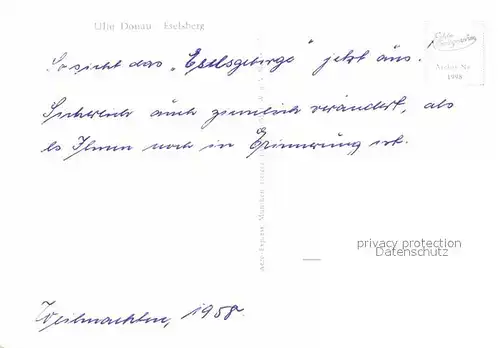 Ulm Donau Eselsberg
Archiv Nr.
1998
So sieht das „Eselsgebirge" jetzt aus.
Sicherlich auch ziemlich verändert, als
es Ihnen noch in Erinnerung ist.
privacy protection
Datenschutz
Weihnachten, 1958.